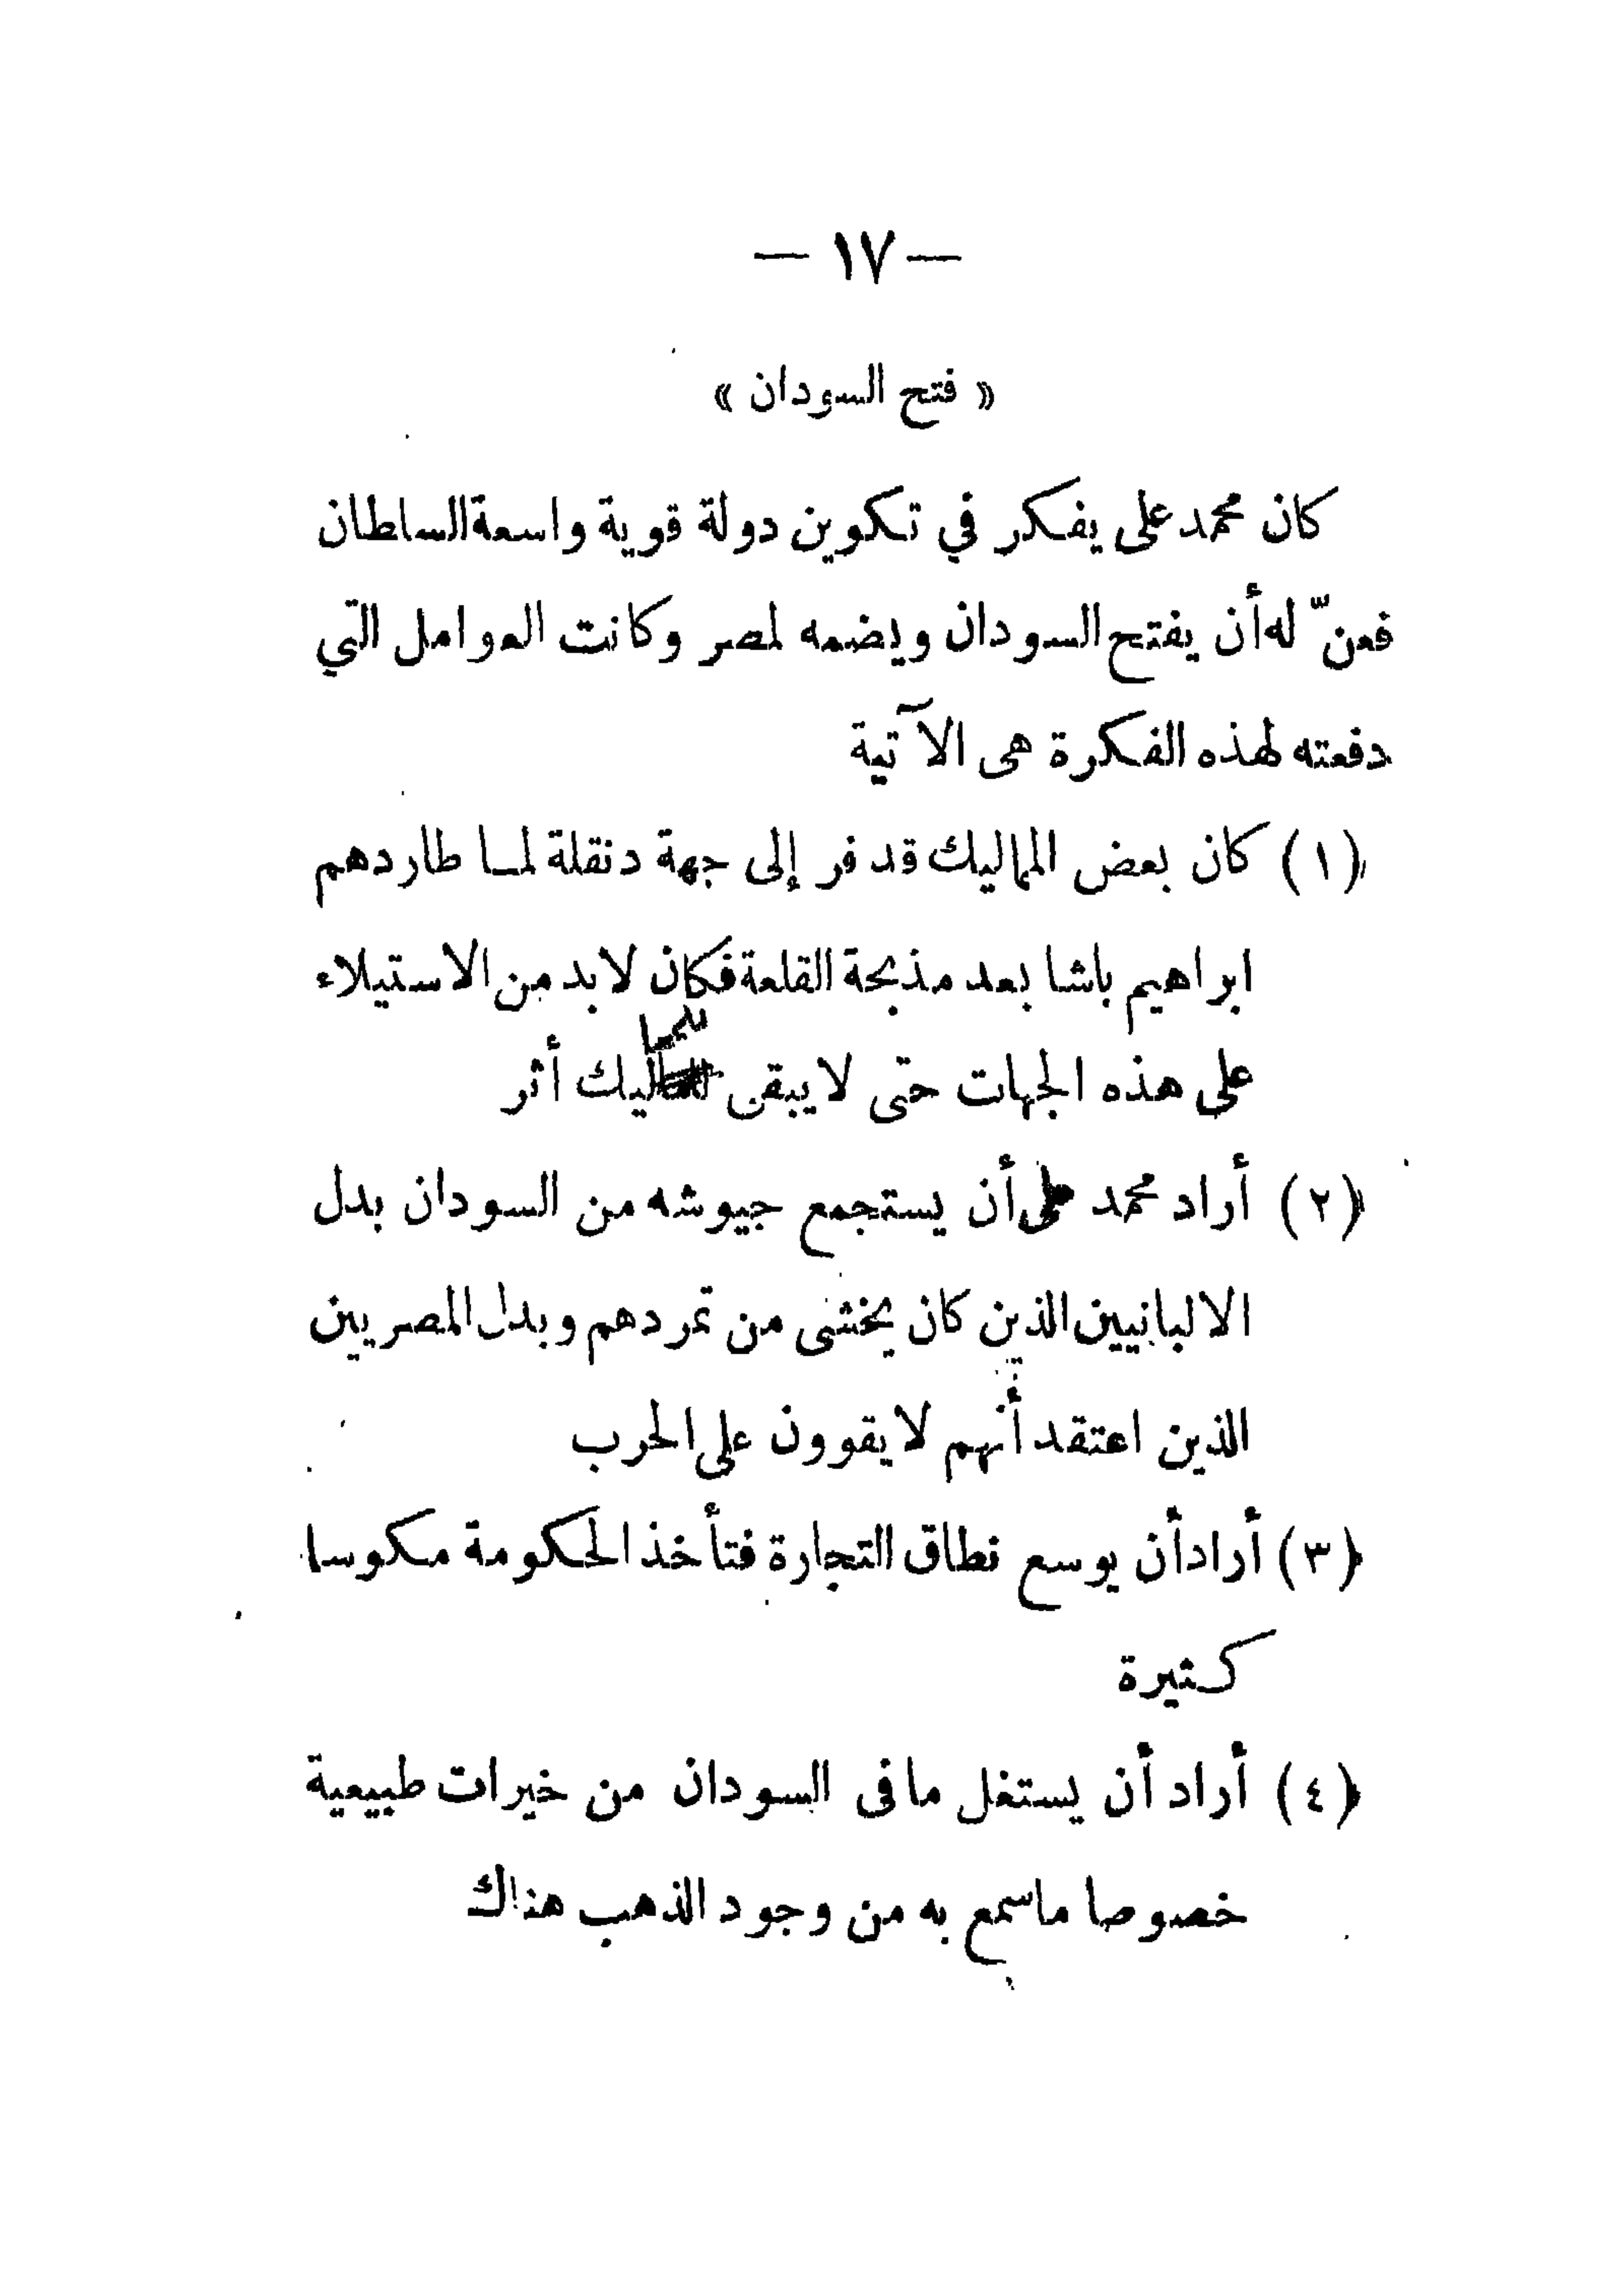 — ١٧ —
« فتح السودان »
كان محمد على يفكر في تكوين دولة قوية واسعة السلطان
فعنّ له أن يفتح السودان ويضمه لمصر وكانت العوامل التي
دفعته لهذه الفكرة هى الآتية
(١) كان بعض المماليك قد فر إلى جهة دنقلة لما طاردهم
ابراهيم باشا بعد مذبحة القلعة فكان لابد من الاستيلاء
على هذه الجهات حتى لا يبقى للمماليك أثر
(٢) أراد محمد على أن يستجمع جيوشه من السودان بدل
الالبانيين الذين كان يخشى من تمردهم وبدل المصريين
الذين اعتقد أنهم لا يقوون على الحرب
(٣) أراد أن يوسع نطاق التجارة فتأخذ الحكومة مكوسا
كثيرة
(٤) أراد أن يستغل ما فى السودان من خيرات طبيعية
خصوصا ما سمع به من وجود الذهب هناك